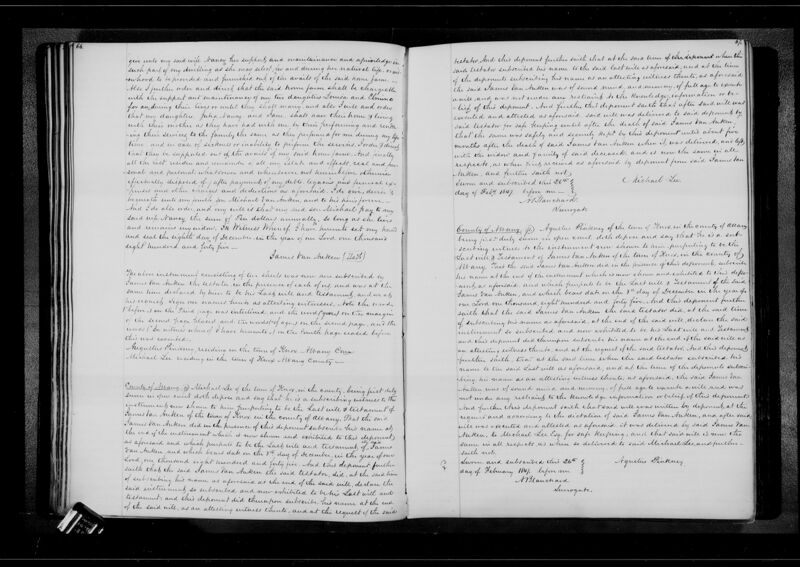 66
give unto my said wife Nancy her support and maintainance and a privilege in
such part of my dwelling as she may select, for and during her natural life, or
widowhood to be provided and furnished out of the avails of the said home farm.
Also I further order and direct that the said home farm shall be chargeable
with the support and maintainance of my two daughters Louisa and
for and during their lives or until they shall marry, and also I will and order
that my daughters Julia, Nancy and Jane shall have their home & living
with their mother as they have had with me by their performing and rendering
their services to the family the same as they performed for me during my life
time. and in case of sickness or inability to perform the services I order & direct
that they be supported out of the avails of my said home farm. And next
all the rest residue and remainder of all my estate and effects real and personal
and personal whatsoever and wheresoever not hereinbefore otherwise
effectually disposed of, after payment of my debts legacies and funeral expenses
and other charges and deductions as aforesaid. I do give devise &
bequeath unto my son Michael Van Auken, and to his heirs forever.
And I do also order and my will is that my said son Michael pay to my
said wife Nancy the sum of Ten dollars annually, so long as she lives
and remains my widow. In Witness Whereof I have hereunto set my hand
and seal the eighth day of December in the year of our Lord one thousand
eight hundred and forty five —
James Van Auken [Seal]
The above instrument consisting of two sheets was now here subscribed by
James Van Auken the testator in the presence of each of us, and was at the
same time declared by him to be his Last will and testament, and we at
his request sign our names hereto as attesting witnesses.
before it on the Third page was interlined, and the word on the margin
of the second page placed and the words on the second page, and the
words on the fourth page erased before
this was executed.
Augustus Pinkney residing in the town of Knox Albany County
Michael Lee residing in the town of Knox Albany County —
County of Albany ss Michael Lee of the town of Knox, in the county, being first duly
sworn in open court doth depose and say that he is a subscribing witness to the
instrument now shown to him purporting to be the Last will & testament of
James Van Auken of the town of Knox in the county of Albany. That the said
James Van Auken did in the presence of this deponent subscribe his name at
the end of the instrument which is now shown and exhibited to this deponent,
as aforesaid and which purports to be the Last will and testament of James
Van Auken and which bears date on the 8th day of December, in the year of our
Lord, one thousand eight hundred and forty five. And this deponent further
saith that the said James Van Auken the said testator, did, at the said time
of subscribing his name as aforesaid at the end of the said will, declare the
said instrument so subscribed and now exhibited to be his Last will and
testament; and this deponent did thereupon subscribe his name at the end
of the said will, as an attesting witness thereto, and at the request of the said
67
testator. And this deponent further saith that at the said time of this deponent when the
said testator subscribed his name to the said last will as aforesaid, and at the time
of the deponents subscribing his name as an attesting witness thereto, as aforesaid
the said James Van Auken was of sound mind, and memory of full age to execute
a will, and was not under any restraint to the knowledge, information or belief
of this deponent. And further this deponent saith that after said will was
executed and attested as aforesaid said will was delivered to said deponent by
said testator for safe keeping until after the death of said James Van Auken,
that the same was safely and securely kept by this deponent until about five
months after the death of said James Van Auken when it was delivered, and left
with the widow and family of said deceased, and is now the same in all
respects, as when first received as aforesaid by deponent from said James Van
Auken, and further saith not.
Sworn and subscribed this 26th
day of Feby. 1847. before me —
Michael Lee
A Blanchard
Surrogate
County of Albany ss Agustus Pinkney of the town of Knox in the county of Albany
being first duly sworn in open court, doth depose and say that he is a subscribing
witness to the instrument now shown to him purporting to be the
Last will & Testament of James Van Auken of the town of Knox, in the county of
Albany. That the said James Van Auken did in the presence of this deponent subscribe
his name at the end of the instrument which is now shown and exhibited to this deponent,
as aforesaid, and which purports to be the Last will & Testament of the said
James Van Auken, and which bears date on the 8th day of December in the year of
our Lord one thousand eight hundred and forty five. And this deponent further
saith that the said James Van Auken the said testator did, at the said time
of subscribing his name as aforesaid, at the end of the said will declare the said
instrument so subscribed and now exhibited to be his Last will and Testament
and this deponent did thereupon subscribe his name at the end of the said will as
an attesting witness thereto, and at the request of the said testator. And this deponent
further saith, that at the said time when the said testator subscribed his
name to the said Last will as aforesaid, and at the time of the deponents subscribing
his name as an attesting witness thereto, as aforesaid, the said James Van
Auken was of sound mind and memory of full age to execute a will and was
not under any restraint to the knowledge information or belief of this deponent.
And further this deponent saith that said will was written by deponent, at the
request and according to the dictation of said James Van Auken, and after said
will was executed and attested as aforesaid it was delivered by said James Van
Auken, to Michael Lee Esq. for safe keeping, and that said will is now the
same in all respects as when so delivered to said Michael Lee, and further
saith not.
Sworn and subscribed this 26th
day of February 1847. before me
Agustus Pinkney
A Blanchard
Surrogate.